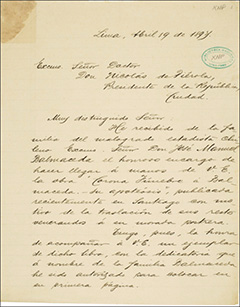 Lima, Abril 19 de 1897
Excmo. Señor Doctor
Don Nicolás de Piérola,
Presidente de la República,
Ciudad.
Muy distinguido Señor:
He recibido de la fa-
milia del malogrado estadista chi-
leno Excmo. Señor Don José Manuel
Balmaceda el honroso encargo de
hacer llegar á manos de V.E.
la obra "Corona fúnebre a Bal-
maceda. Su apoteósis", publicada
recientemente en Santiago con mo-
tivo de la traslación de sus restos
venerandos á su morada postrera.
Tengo, pues, la honra
de acompañar á V.E. un ejemplar
de dicho libro, con la dedicatoria que
á nombre de la familia Balmaceda
he sido autorizado para colocar en
su primera página.